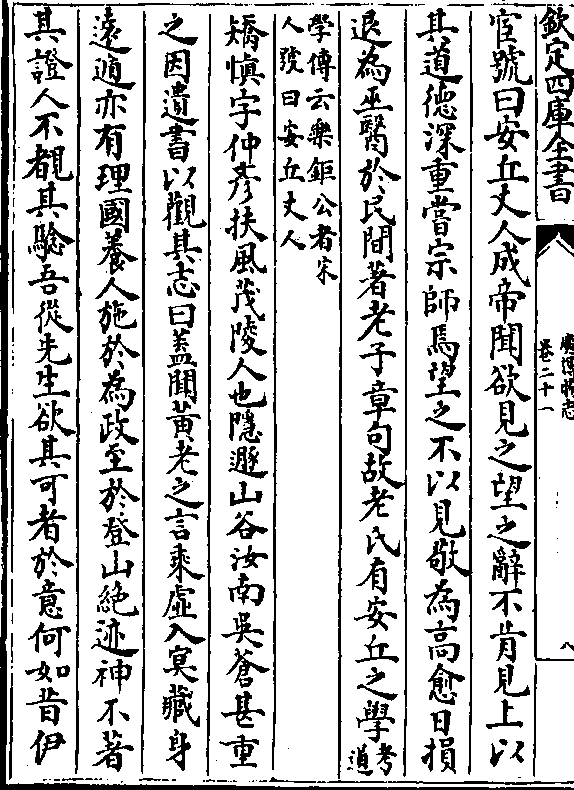 欽定四庫全書
廣博物志
卷二十一
八
宦號曰安丘丈人成帝聞欲見之望之辭不肯見上以
其道德深重嘗宗師焉望之不以見敬為高愈日損
退為巫醫於民間著老子章句故老氏有安丘之學考道
學傳云樂鉅公者宋
人號曰安丘丈人
矯慎字仲彥扶風茂陵人也隱遯山谷汝南吳蒼甚重
之因遺書以觀其志曰蓋聞黃老之言乘虛入冥藏身
遠遁亦有理國養人施於為政至於登山絶迹神不著
其證人不覩其驗吾從先生欲其可者於意何如昔伊